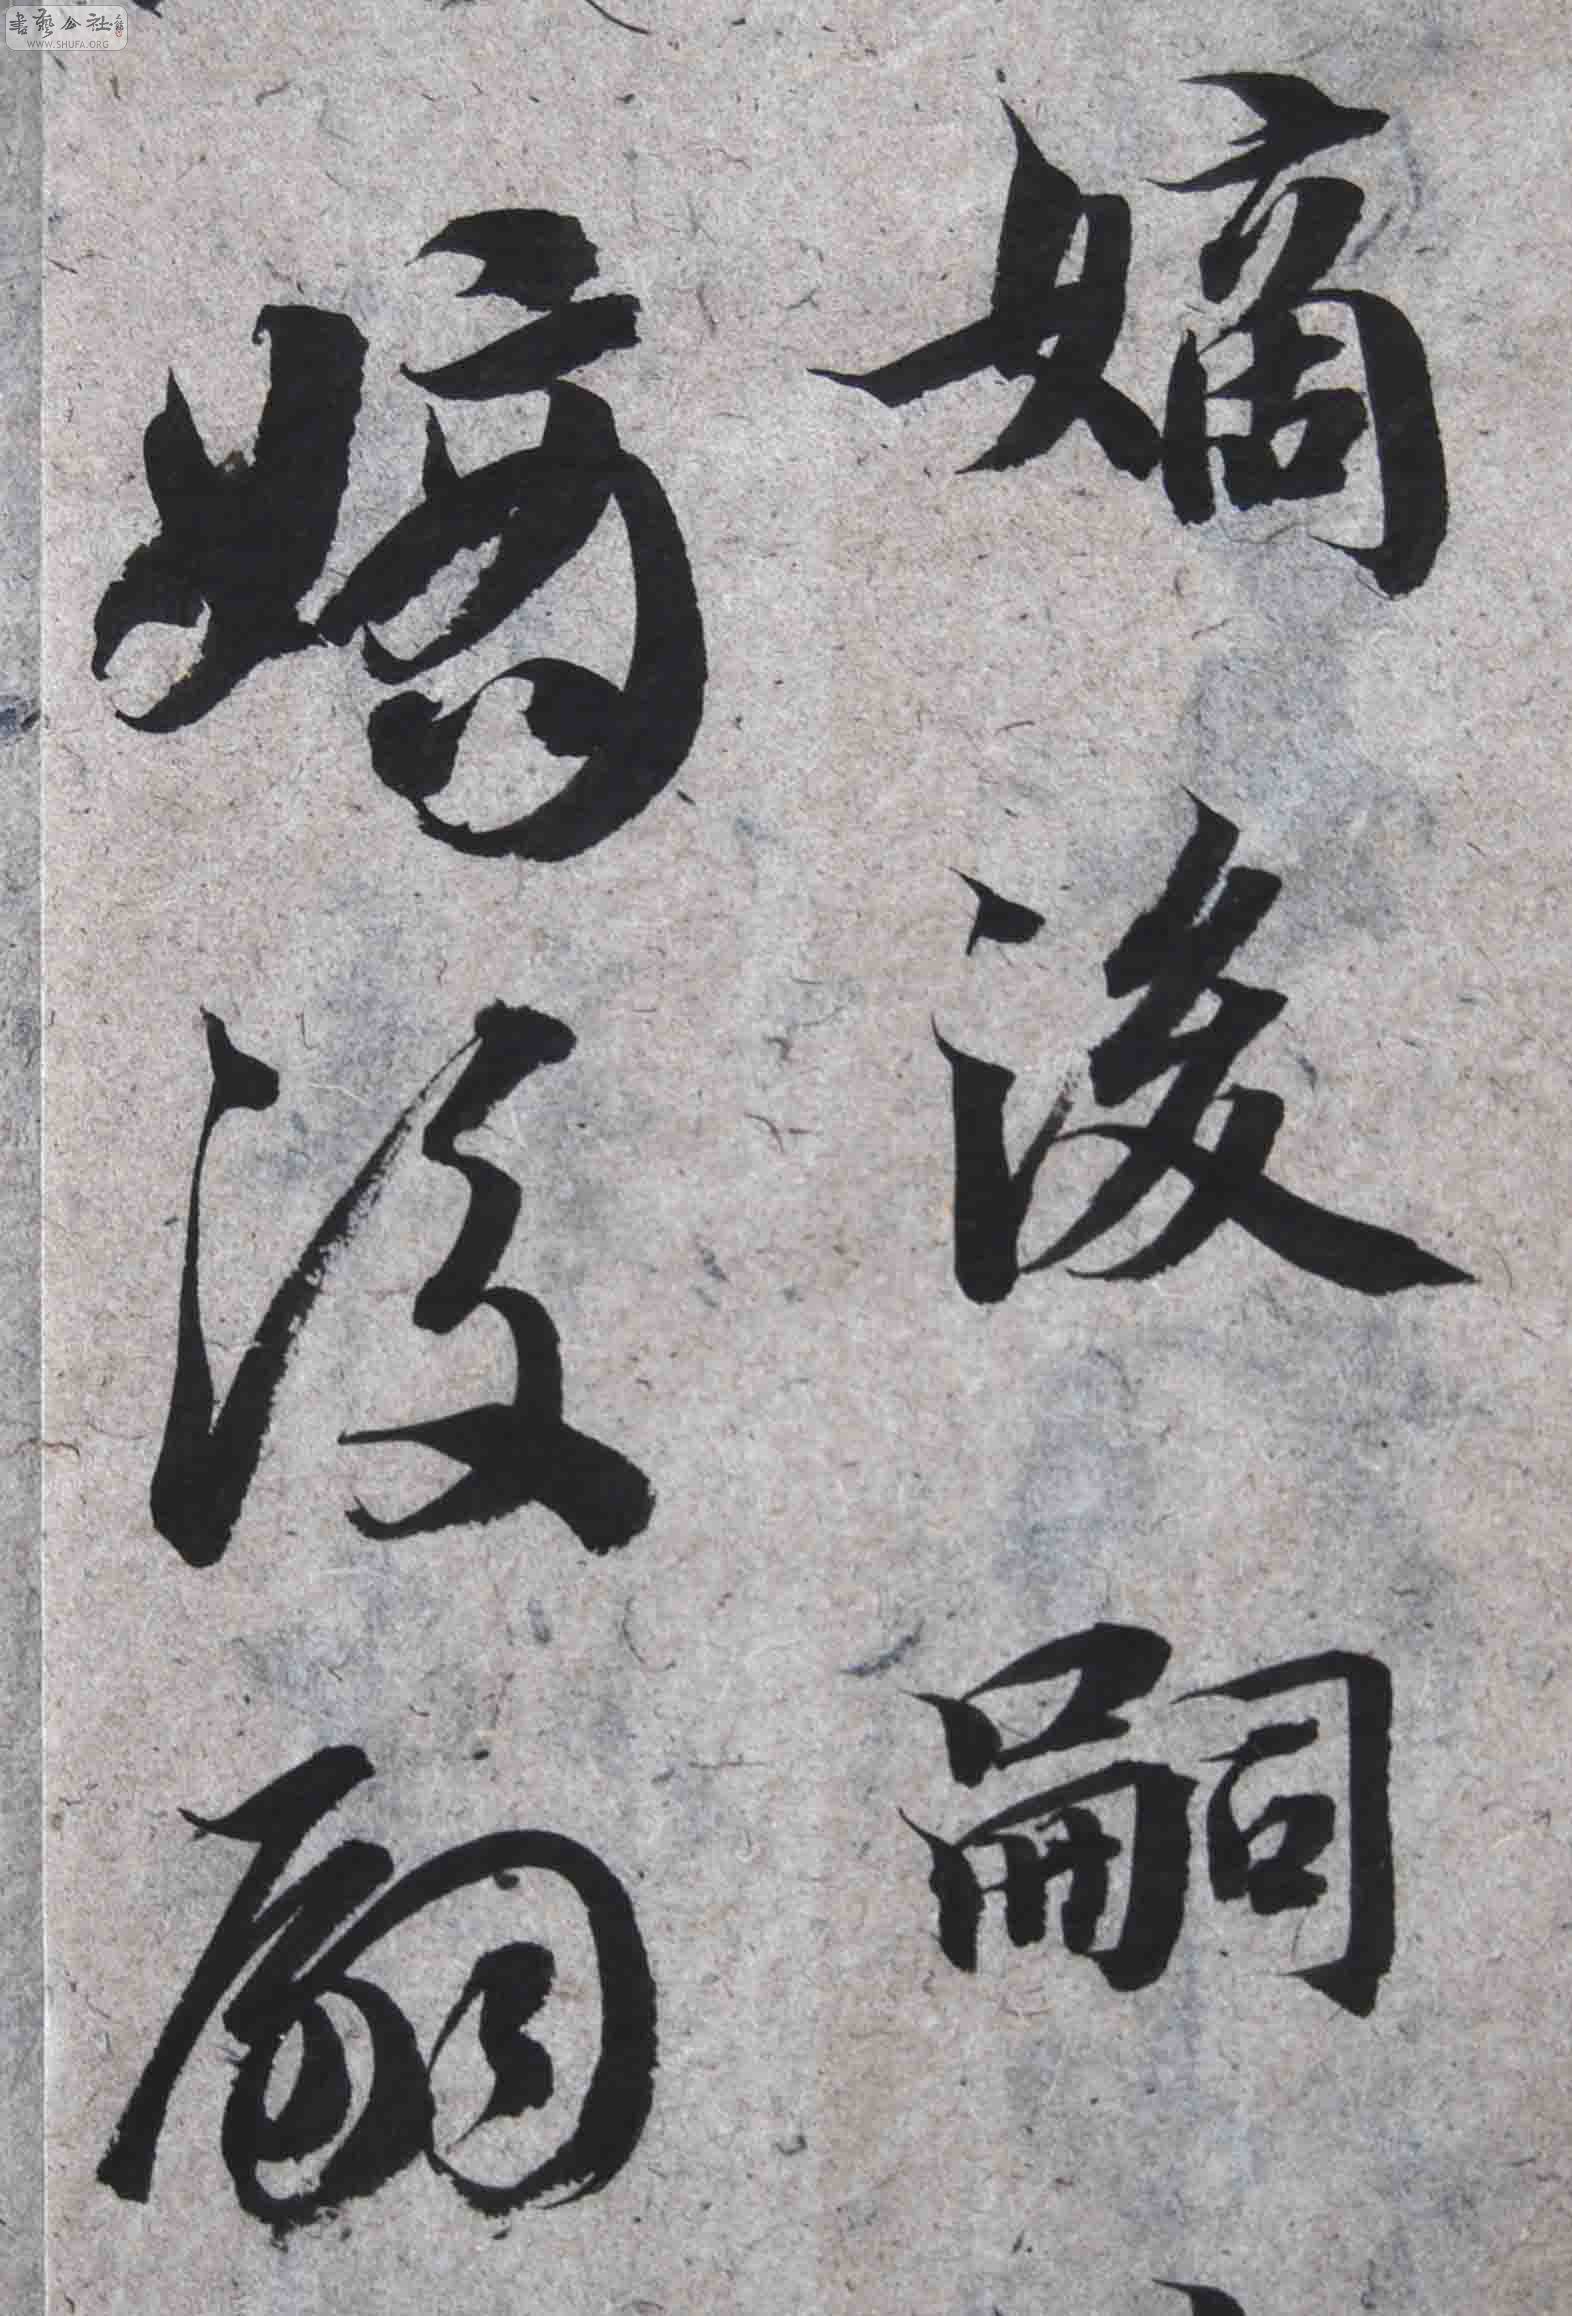 嫡後嗣
嫡後嗣
書藝公社
WWW.SHUFA.ORG